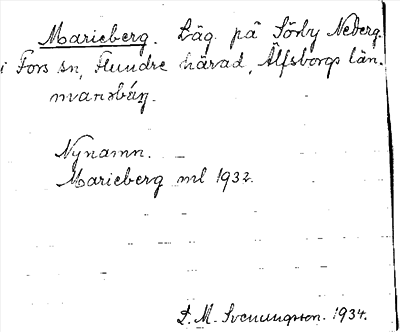 Marieberg. Läg. på Sörby Nederg.
i Fors sn, Flundre härad, Älfsborgs län.
Nynamn.
Marieberg ml 1932.
L. M. Svenungsson. 1934.